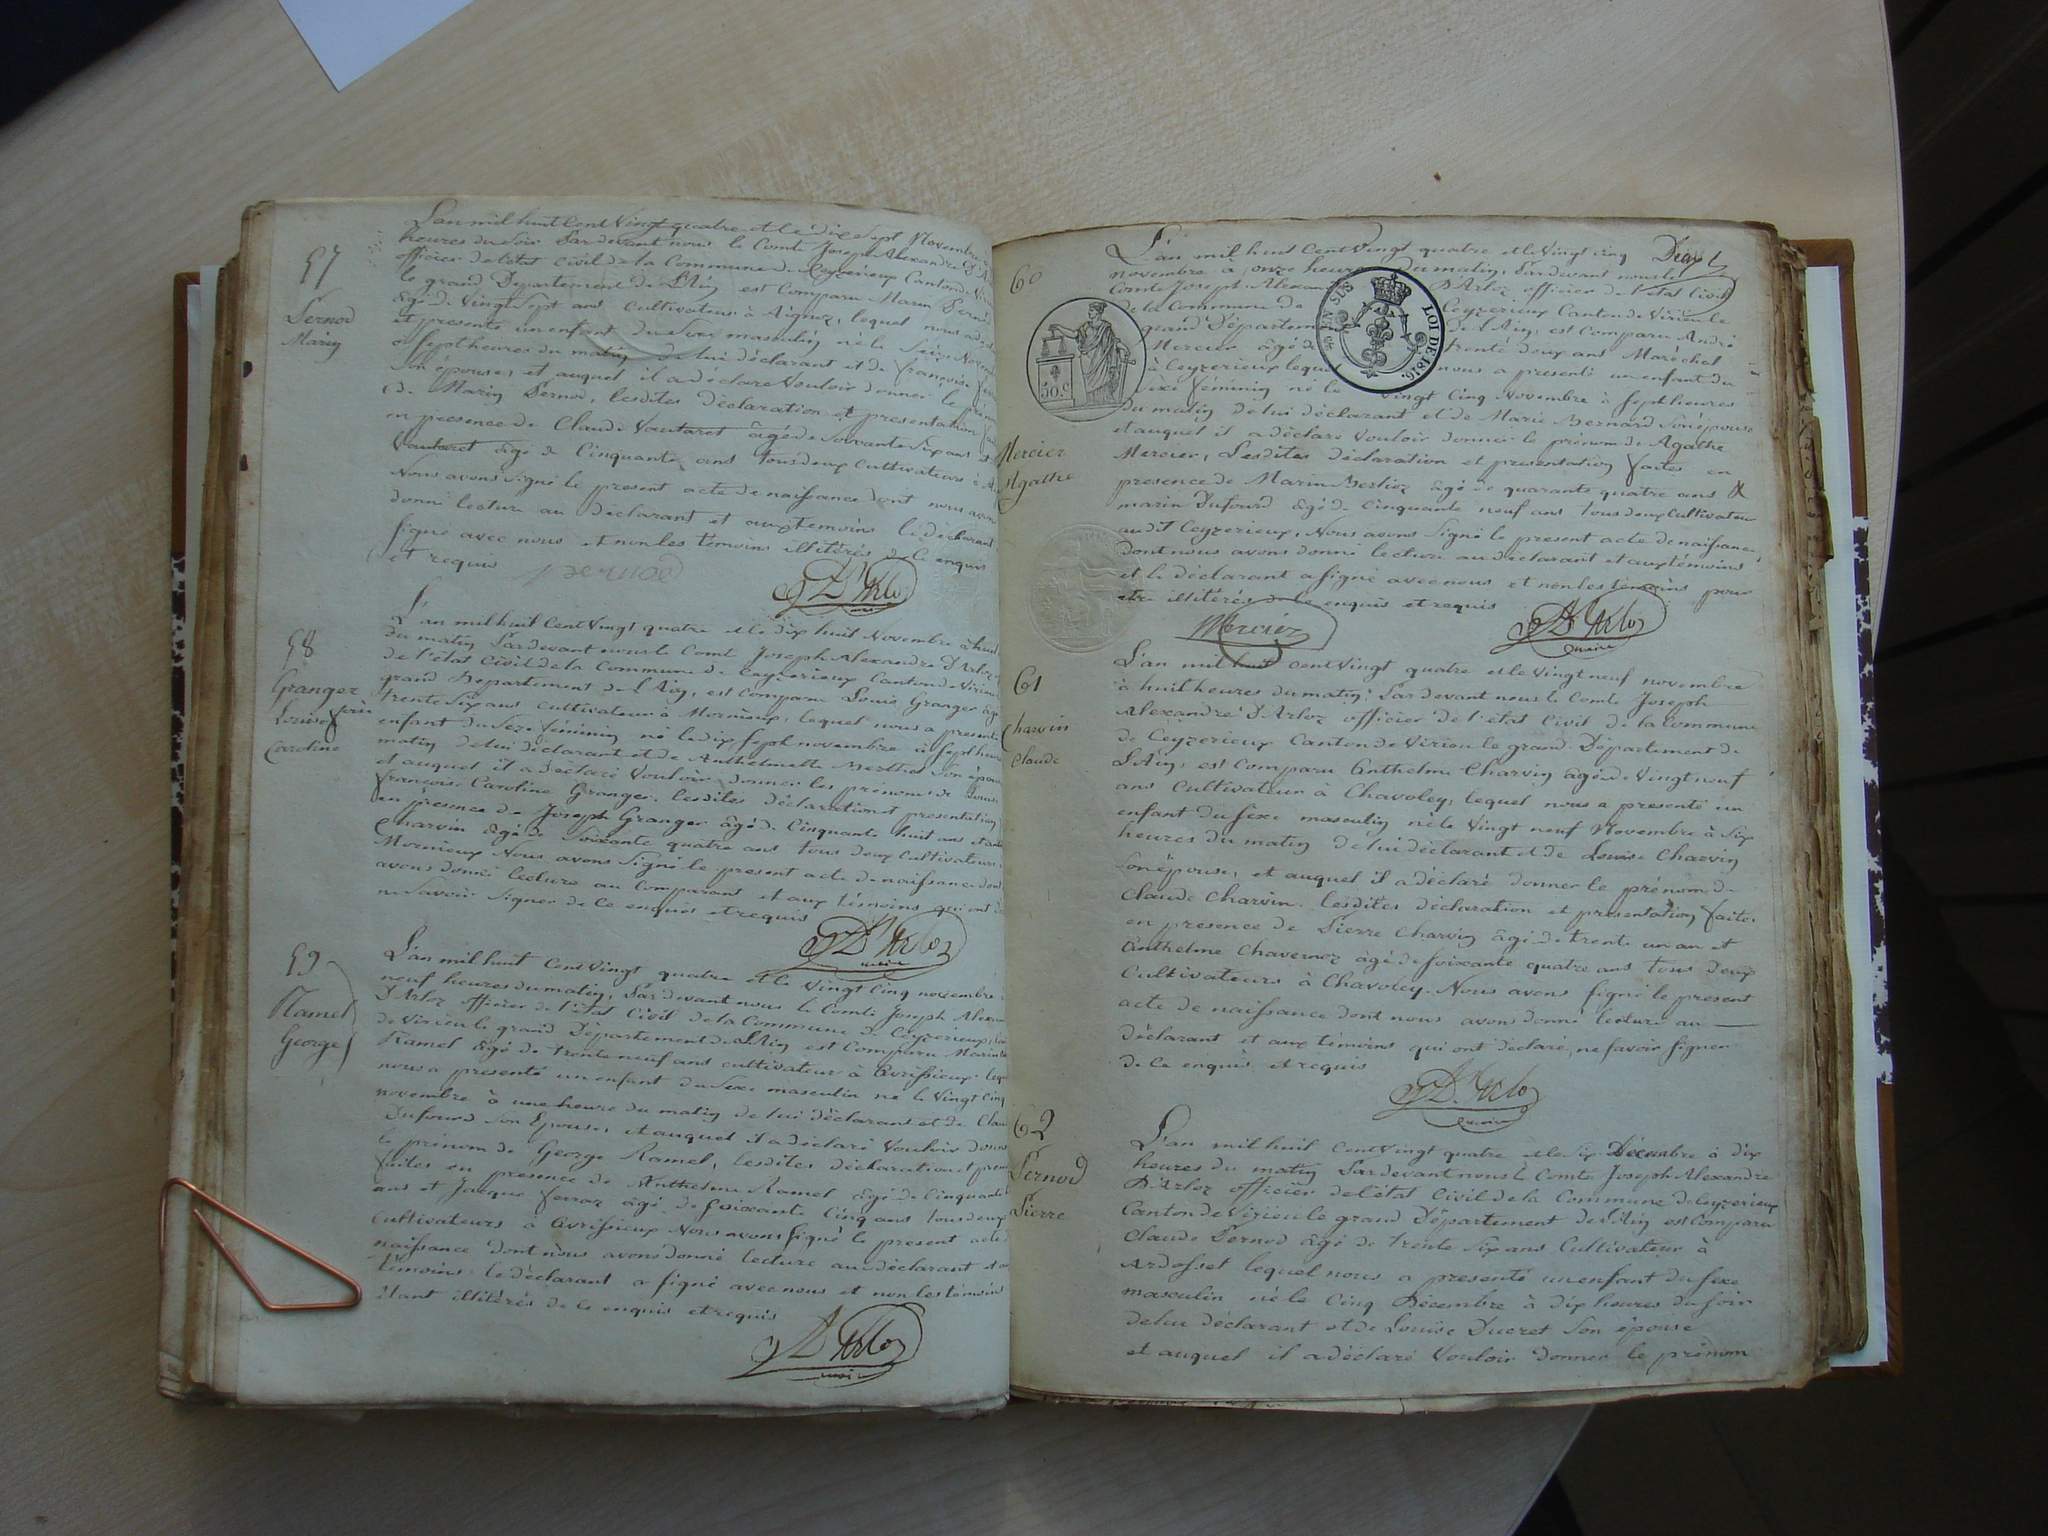 57
Pernod
Marin
L'an mil huit cent vingt quatre et le dix sept Novembre à
heures du soir Par devant nous le Comte Joseph Alexandre D'A
officier de l'état civil de la Commune de Ceyzerieux Canton de Viri
le grand Département de L'Ain est comparu Marin Pernod
âgé de vingt sept ans cultivateur à Aignoz, lequel nous a
et presenté un enfant du sexe masculin né le seize Novem
à sept heures du matin de lui déclarant et de françoise
son épouse, et auquel il a déclaré vouloir donner le prénom
de Marin Pernod, lesdites déclaration et presentation fait
en presence de Claude Vautaret âgé de soixante six ans et
Vautaret âgé de Cinquante ans tous deux cultivateurs à
Nous avons signé le present acte de naissance dont nous avons
donné lecture au déclarant et aux témoins le déclarant
signé avec nous et non les témoins illitérés de ce enquis
et requis
D'Arloz
maire
58
Granger
Louise fçoise
Caroline
L'an mil huit cent vingt quatre et le dix huit Novembre à huit
du matin Par devant nous le Comte Joseph Alexandre D'Arloz
de l'état Civil de la Commune de Ceyzerieux Canton de Virieu
grand Département de L'Ain, est comparu Louis Granger âgé
trente six ans cultivateur à Mornieux, lequel nous a presenté
enfant du sexe féminin né le dix sept novembre à sept heures
matin de lui déclarant et de Anthelmette Berthet son épouse
et auquel il a déclaré vouloir donner les prénoms de Louise
françoise Caroline Granger. lesdites déclaration et presentation
en presence de Joseph Granger âgé de Cinquante huit ans et
Charvin âgé de soixante quatre ans tous deux cultivateurs
Mornieux Nous avons signé le present acte de naissance dont
avons donné lecture au comparant et aux témoins qui ont
ne savoir signer de ce enquis et requis
D'Arloz
maire
59
Ramel
George
L'an mil huit cent vingt quatre et le vingt cinq novembre
neuf heures du matin, Par devant nous le Comte Joseph Alexan
D'Arloz officier de l'état Civil de la Commune de Ceyzérieux,
de Virieu le grand Département de L'Ain est comparu Marin
Ramel âgé de trente neuf ans cultivateur à Avrissieux. leq
nous a presenté un enfant du sexe masculin né le vingt cinq
novembre à une heure du matin de lui déclarant et de Clau
Dufourd son épouse, et auquel il a déclaré vouloir donner
le prénom de George Ramel, lesdites déclaration et presen
faites en presence de Anthelme Ramel âgé de Cinquante
ans et Jacque ferroz âgé de soixante cinq ans tous deux
cultivateurs à Avrissieux Nous avons signé le present acte
naissance dont nous avons donné lecture au déclarant et
témoins. le déclarant a signé avec nous et non les témoins
étant illitérés de ce enquis et requis
D'Arloz
maire
60
Mercier
Agathe
L'an mil huit cent vingt quatre et le vingt cinq
novembre à onze heures du matin, Par devant nous le
Comte Joseph Alexan D'Arloz officier de l'état Civil
de la Commune de Ceyzerieux Canton de Virieu le
grand Départemen de L'Ain, est comparu André
Mercier âgé de trente deux ans Maréchal
à Ceyzerieux lequel nous a presenté un enfant du
sexe féminin né le vingt cinq Novembre à sept heures
du matin de lui déclarant et de Marie Bernard son épouse
et auquel il a déclaré vouloir donner le prénom de Agathe
Mercier, Lesdites déclaration et presentation faites en
presence de Marin Berlioz âgé de quarante quatre ans &
marin Dufourd âgé de cinquante neuf ans tous deux cultivateurs
audit Ceyzerieux, Nous avons signé le present acte de naissance,
dont nous avons donné lecture au déclarant et aux témoins
et le déclarant a signé avec nous et non les témoins pour
etre illitérés de ce enquis et requis
50 C.
EN SUS
LOI DE 1816.
Mercier
D'Arloz
maire
61
Charvin
Claude
L'an mil huit cent vingt quatre et le vingt neuf novembre
à huit heures du matin, Par devant nous le Comte Joseph
Alexandre D'Arloz officier de l'état Civil de la Commune
de Ceyzerieux Canton de Virieu le grand. Département de
L'Ain, est comparu Anthelme Charvin âgé de vingt neuf
ans Cultivateur à Chavoley, lequel nous a presenté un
enfant du sexe masculin né le vingt neuf Novembre à six
heures du matin de lui déclarant et de Louise Charvin
son épouse, et auquel il a déclaré donner le prénom de
Claude Charvin. lesdites déclaration et presentation faites
en presence de Pierre Charvin âgé de trente un an et
Anthelme Chavernoz âgé de soixante quatre ans tous deux
Cultivateurs à Chavoley. Nous avons signé le present
acte de naissance dont nous avons donné lecture au
déclarant et aux témoins qui ont déclaré, ne savoir signer
de ce enquis et requis
D'Arloz
maire
62
Pernod
Pierre
L'an mil huit cent vingt quatre et le six Décembre à dix
heures du matin Par devant nous le Comte Joseph Alexandre
D'Arloz officier de l'état Civil de la Commune de Ceyzerieux
Canton de Virieu le grand Département de L'Ain est comparu
Claude Pernod âgé de trente six ans Cultivateur à
Ardosset lequel nous a presenté un enfant du sexe
masculin né le cinq Décembre à dix heures du soir
de lui déclarant et de Louise Ducret son épouse
et auquel il a déclaré vouloir donner le prénom